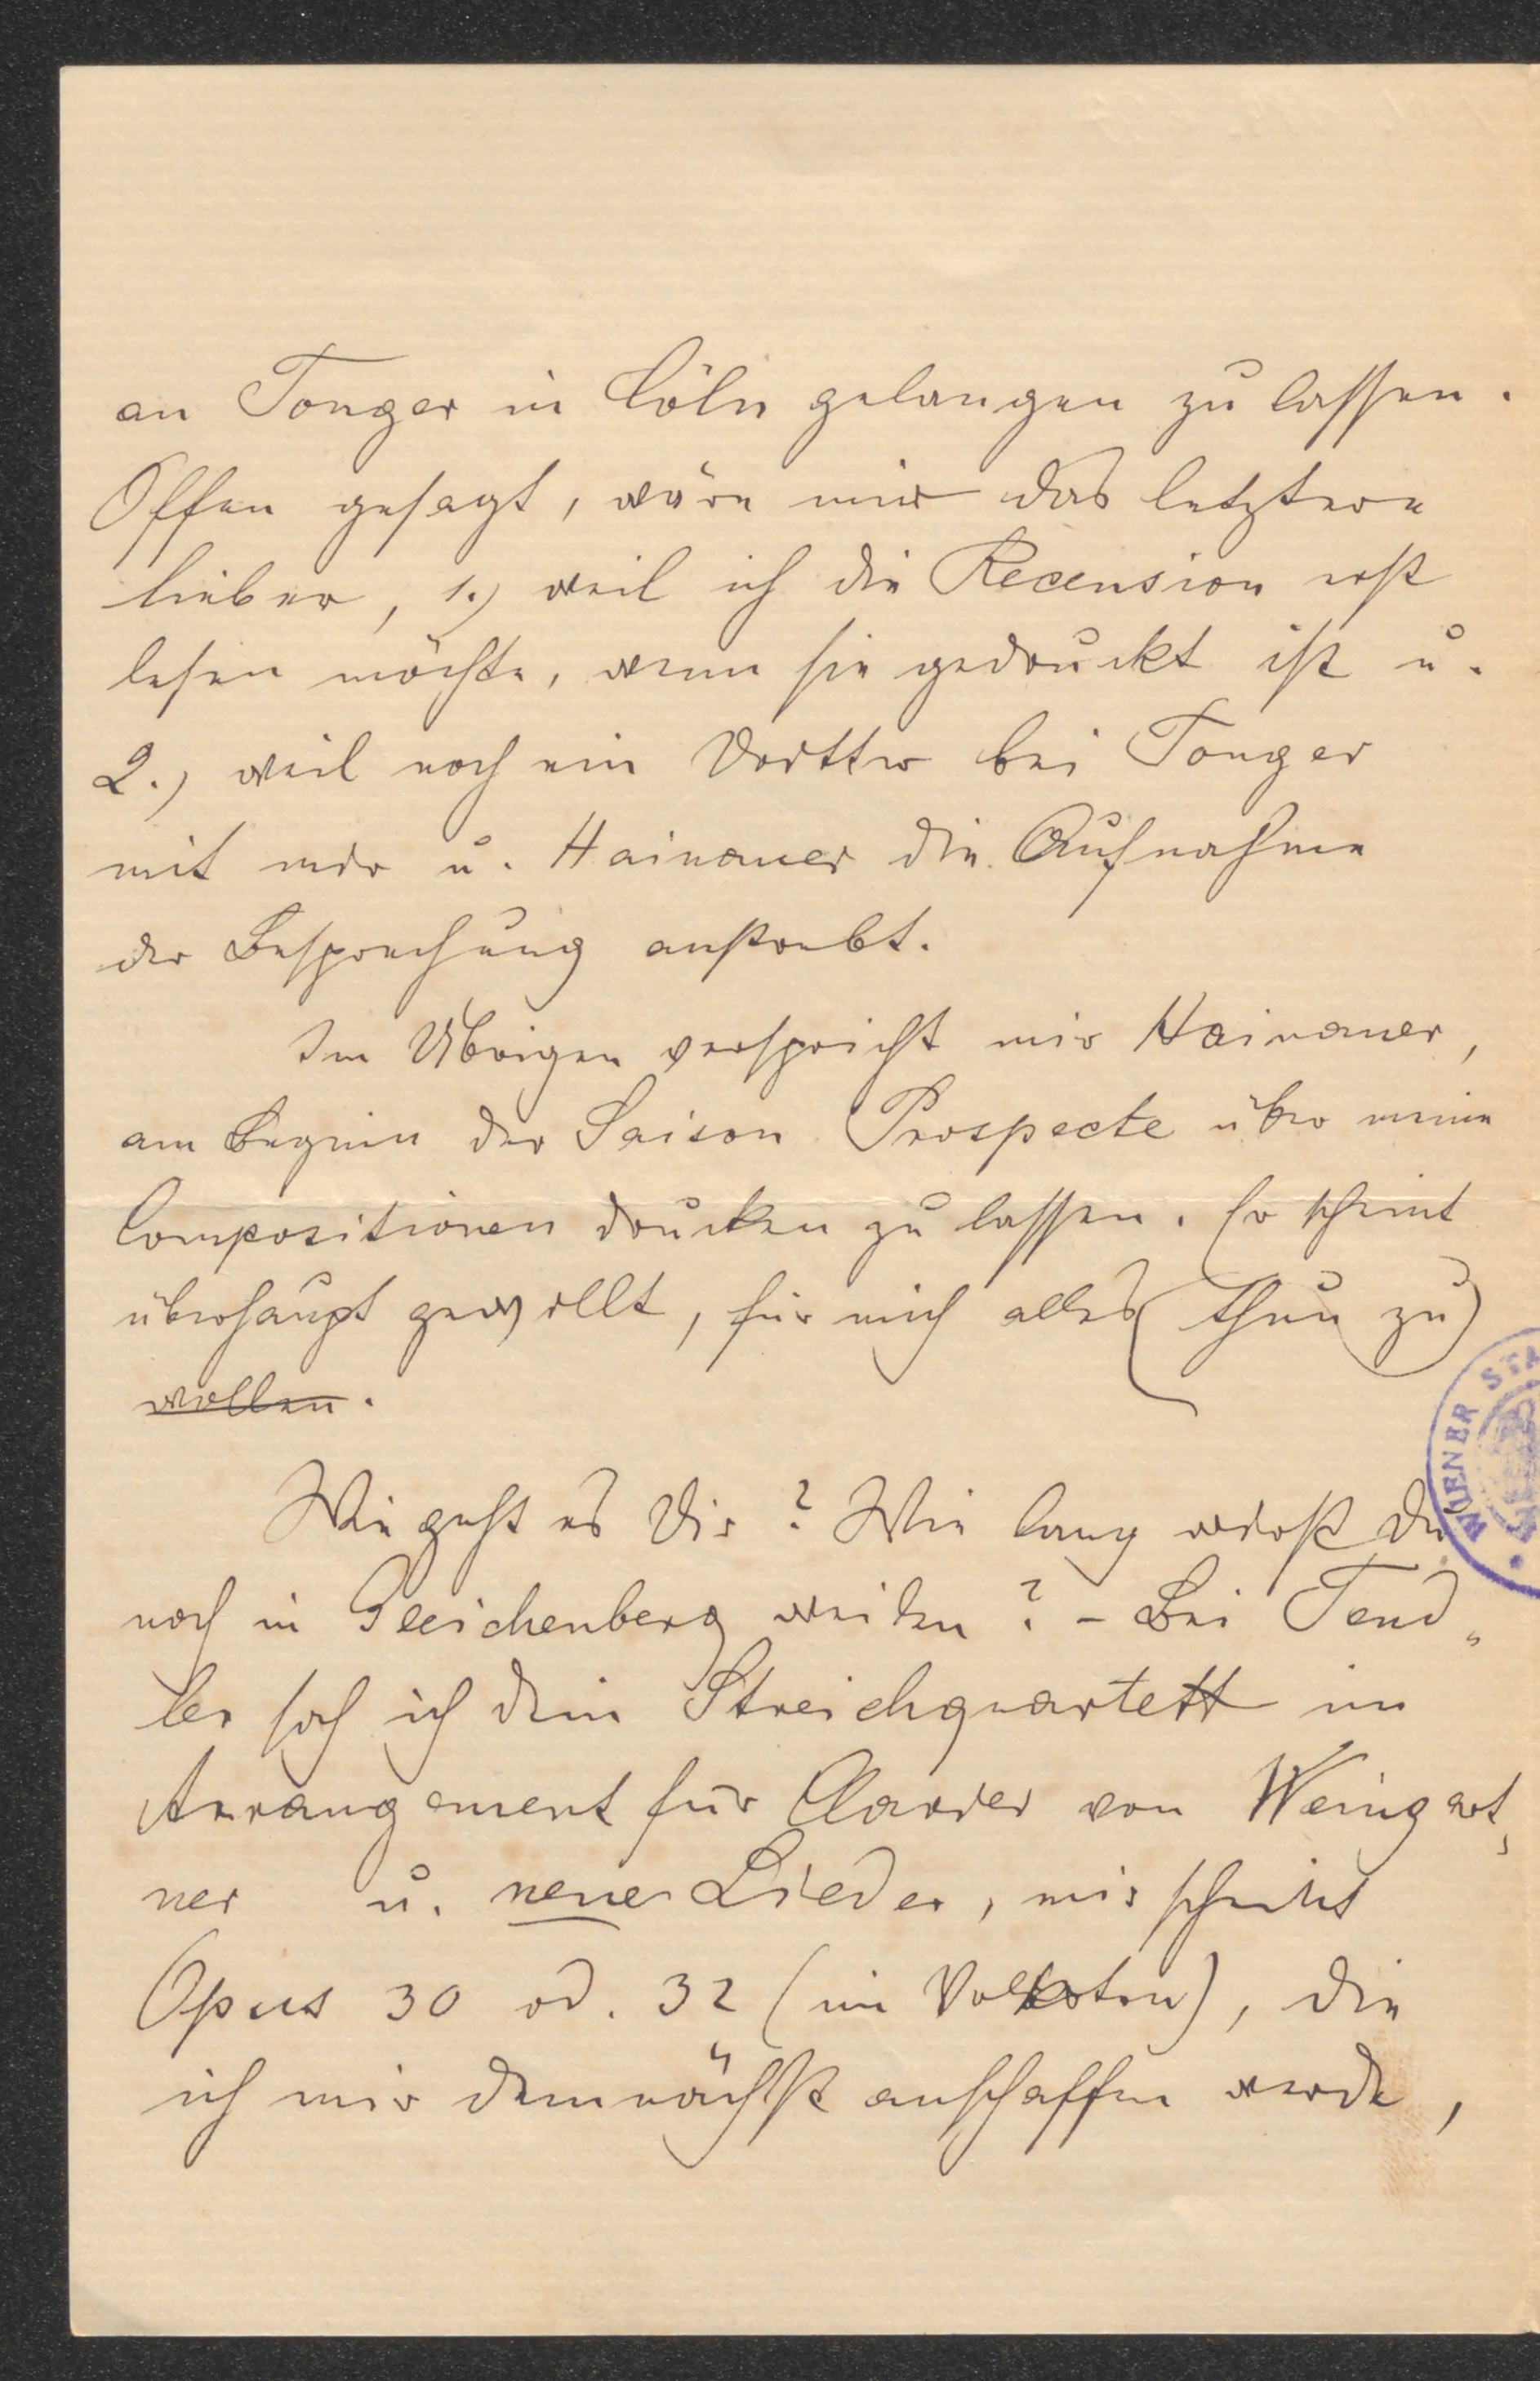 an Tonger in Cöln gelangen zu lassen.
Offen gesagt, wäre mir das letztere
lieber, 1.) weil ich die Recension erst
lesen möchte, wenn sie gedruckt ist u.
2.) weil noch ein Dritter bei Tonger
mit mir u. Hainauer die Aufnahme
der Besprechung anstrebt.
Im Übrigen verspricht mir Hainauer,
am Beginn der Saison Prospecte über meine
Compositionen drucken zu lassen. Er scheint
überhaupt gewillt, für mich alles thun zu
wollen.
Wie geht es Dir? Wie lang wirst Du
noch in Gleichenberg weilen? - Bei Tend„
ler sah ich dein Streichquartett im
Arrangement für Clavier von Weingart„
ner u. neue Lieder, mir scheint
Opus 30 od. 32 (im Volkston), die
ich mir demnächst anschaffen werde,
WIENER STA